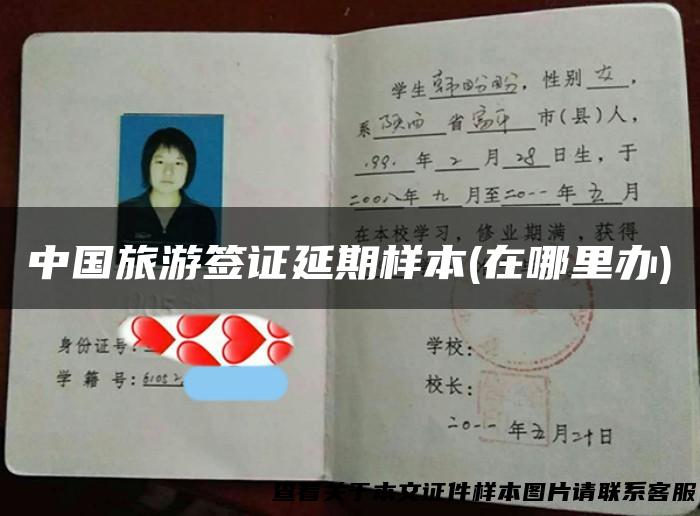 学生韩盼盼，性别女，
系陕西省富平市(县)人，
.991年2月28日生，于
二00八年九月至二0一一年五月
在本校学习，修业期满，获得
中国旅游签证延期样本(在哪里办)
身份证号：
学籍号：61052
学校：
校长：
二0一一年五月二十日
查看关于本文证件样本图片请联系客服